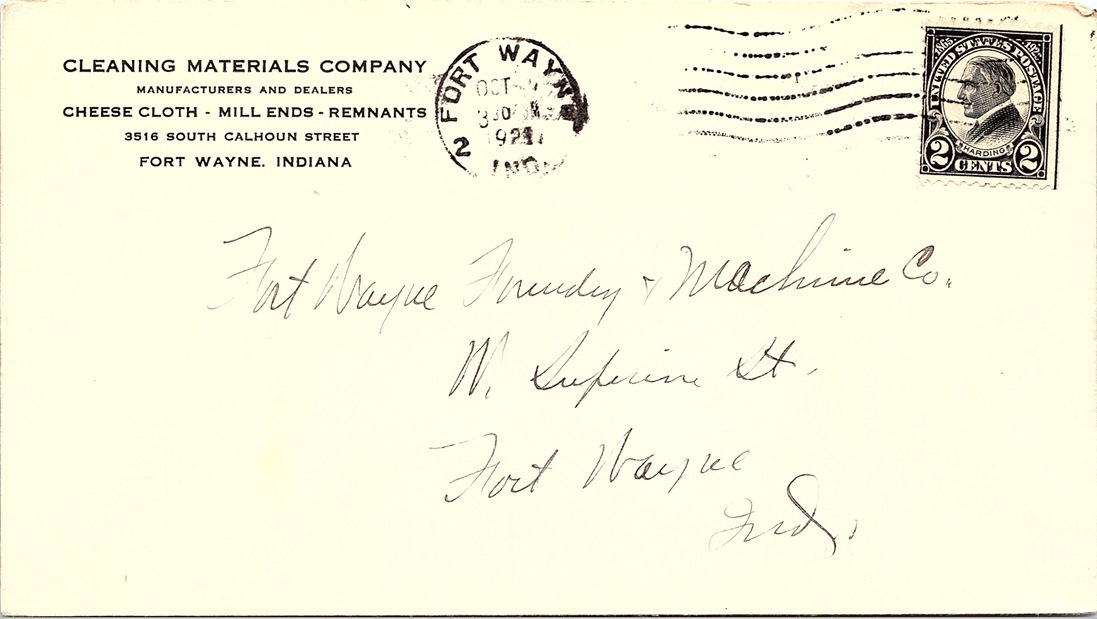 CLEANING MATERIALS COMPANY
MANUFACTURERS AND DEALERS
CHEESE CLOTH - MILL ENDS - REMNANTS
3516 SOUTH CALHOUN STREET
FORT WAYNE. INDIANA
FORT WAYNE
OCT
2
IND.
UNITED STATES POSTAGE
1865 1923
HARDING
2 CENTS 2
Fort Wayne Foundry & Machine Co.
W. Superior St.
Fort Wayne
Ind.